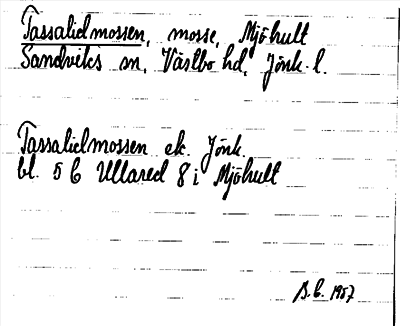 Tassalidmossen, mosse, Mjöhult
Sandviks sn, Västbo hd, Jönk. l.
Tassalidmossen ek. Jönk
bl. 5 C Ullared 8 i Mjöhult
B.C. 1957